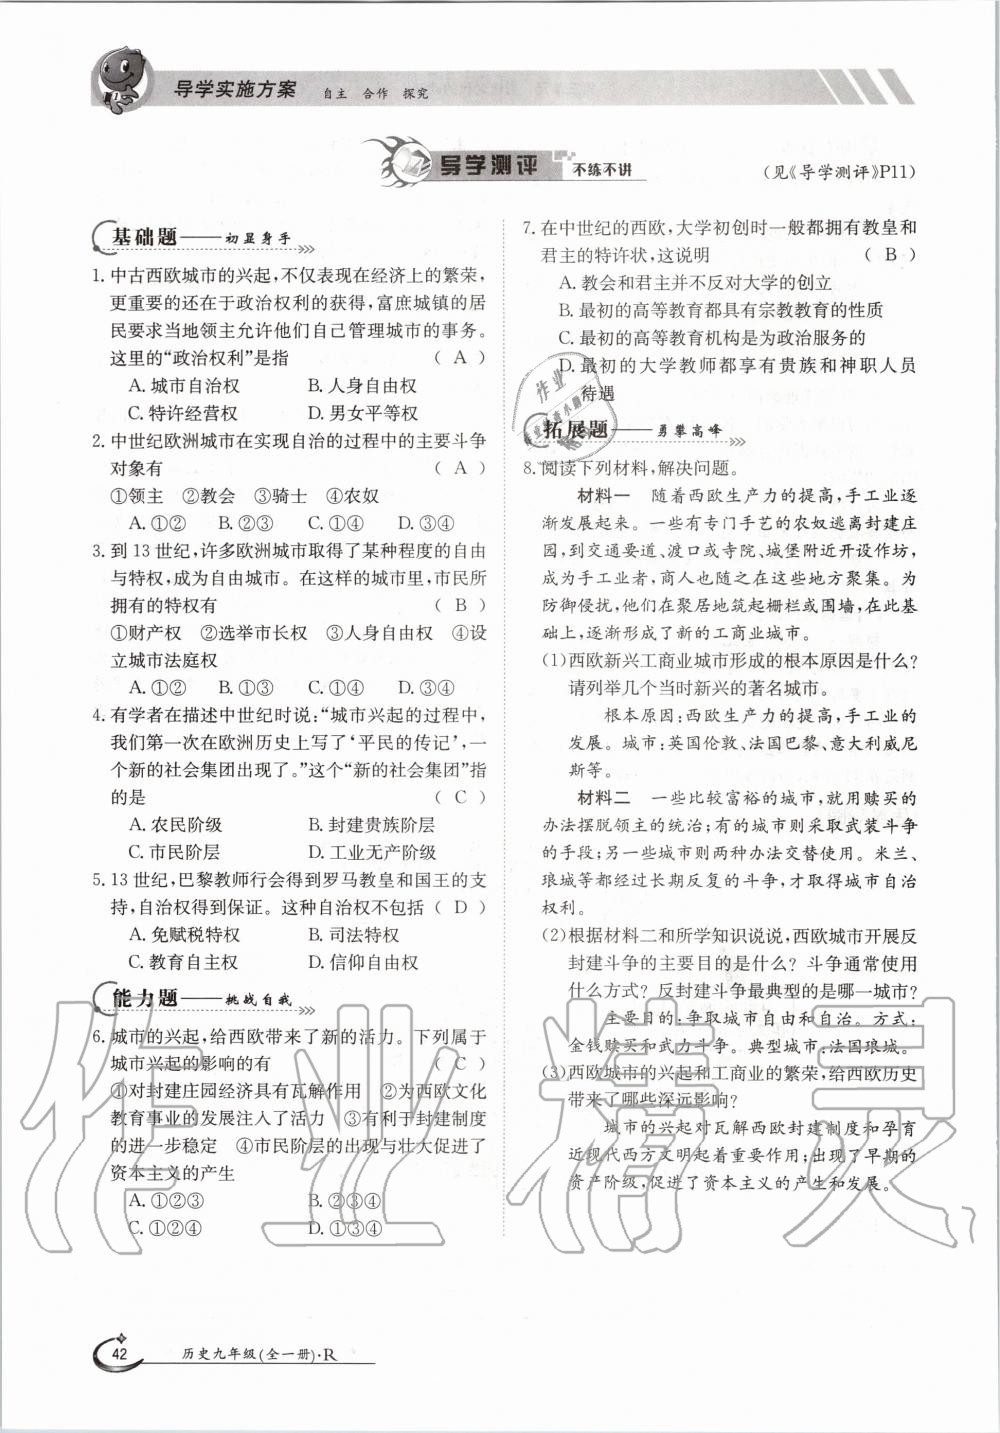 导学实施方案 自主 合作 探究
导学测评 不练不讲
(见《导学测评》P11)
基础题——初显身手
1. 中古西欧城市的兴起,不仅表现在经济上的繁荣,
更重要的还在于政治权利的获得,富庶城镇的居
民要求当地领主允许他们自己管理城市的事务。
这里的“政治权利”是指 ( A )
A. 城市自治权 B. 人身自由权
C. 特许经营权 D. 男女平等权
2. 中世纪欧洲城市在实现自治的过程中的主要斗争
对象有 ( A )
①领主 ②教会 ③骑士 ④农奴
A. ①② B. ②③ C. ①④ D. ③④
3. 到 13 世纪,许多欧洲城市取得了某种程度的自由
与特权,成为自由城市。在这样的城市里,市民所
拥有的特权有 ( B )
①财产权 ②选举市长权 ③人身自由权 ④设
立城市法庭权
A. ①② B. ①③ C. ①④ D. ③④
4. 有学者在描述中世纪时说:“城市兴起的过程中,
我们第一次在欧洲历史上写了‘平民的传记’,一
个新的社会集团出现了。”这个“新的社会集团”指
的是 ( C )
A. 农民阶级 B. 封建贵族阶层
C. 市民阶层 D. 工业无产阶级
5. 13 世纪,巴黎教师行会得到罗马教皇和国王的支
持,自治权得到保证。这种自治权不包括 ( D )
A. 免赋税特权 B. 司法特权
C. 教育自主权 D. 信仰自由权
能力题——挑战自我
6. 城市的兴起,给西欧带来了新的活力。下列属于
城市兴起的影响的有 ( C )
①对封建庄园经济具有瓦解作用 ②为西欧文化
教育事业的发展注入了活力 ③有利于封建制度
的进一步稳定 ④市民阶层的出现与壮大促进了
资本主义的产生
A. ①②③ B. ②③④
C. ①②④ D. ①③④
7. 在中世纪的西欧,大学初创时一般都拥有教皇和
君主的特许状,这说明 ( B )
A. 教会和君主并不反对大学的创立
B. 最初的高等教育都具有宗教教育的性质
C. 最初的高等教育机构是为政治服务的
D. 最初的大学教师都享有贵族和神职人员
待遇
拓展题——勇攀高峰
8. 阅读下列材料,解决问题。
材料一 随着西欧生产力的提高,手工业逐
渐发展起来。一些有专门手艺的农奴逃离封建庄
园,到交通要道、渡口或寺院、城堡附近开设作坊,
成为手工业者,商人也随之在这些地方聚集。为
防御侵扰,他们在聚居地筑起栅栏或围墙,在此基
础上,逐渐形成了新的工商业城市。
(1)西欧新兴工商业城市形成的根本原因是什么?
请列举几个当时新兴的著名城市。
根本原因:西欧生产力的提高,手工业的
发展。城市:英国伦敦、法国巴黎、意大利威尼
斯等。
材料二 一些比较富裕的城市,就用赎买的
办法摆脱领主的统治;有的城市则采取武装斗争
的手段;另一些城市则两种办法交替使用。米兰、
琅城等都经过长期反复的斗争,才取得城市自治
权利。
(2)根据材料二和所学知识说说,西欧城市开展反
封建斗争的主要目的是什么?斗争通常使用
什么方式?反封建斗争最典型的是哪一城市?
主要目的:争取城市自由和自治。方式:
金钱赎买和武力斗争。典型城市:法国琅城。
(3)西欧城市的兴起和工商业的繁荣,给西欧历史
带来了哪些深远影响?
城市的兴起对瓦解西欧封建制度和孕育
近现代西方文明起着重要作用;出现了早期的
资产阶级,促进了资本主义的产生和发展。
作业精灵
42 历史九年级(全一册)·R